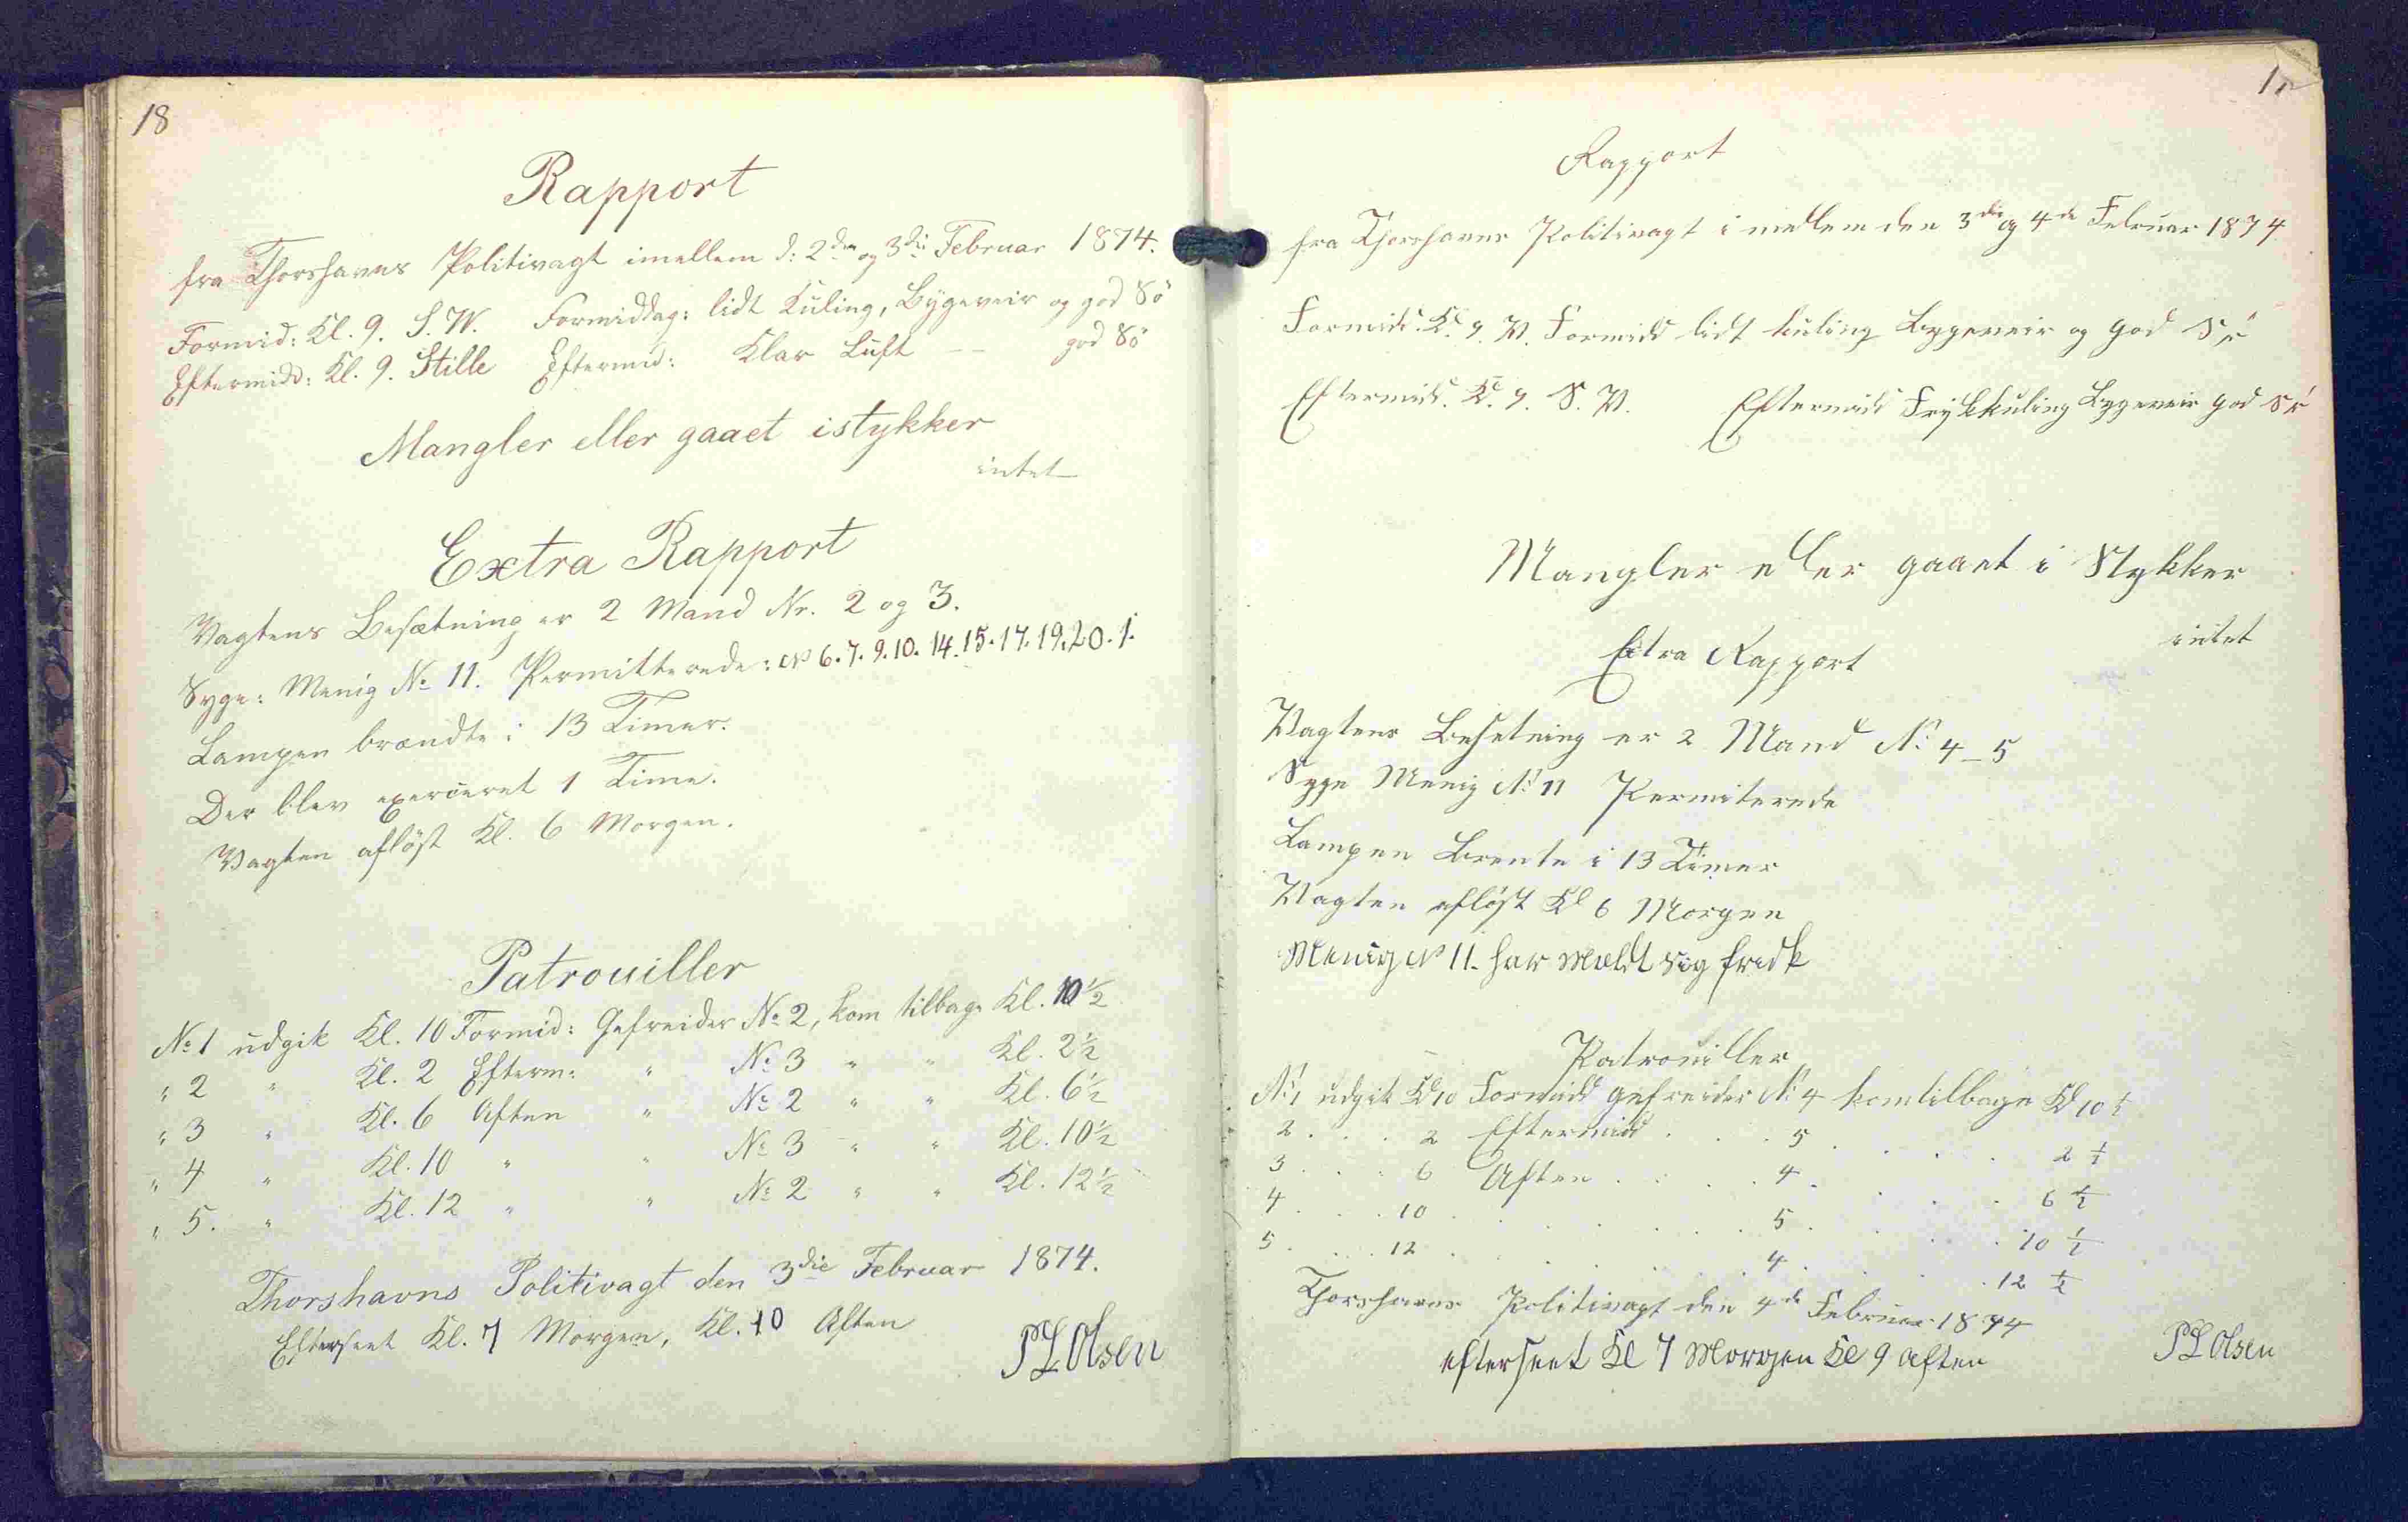 18
Rapport
fra Thorshavns Politivagt imellem d: 2den og 3die Februar 1874.
Formid: Kl. 9. S. W. Formiddag: lidt Kuling, Bygeveir og god Sö
Eftermidd: Kl. 9. Stille Eftermid: Klar Luft — — god Sö
Mangler eller gaaet istykker
intet
Extra Rapport
Vagtens Besætning er 2 Mand Nr. 2 og 3.
Syge: Menig No 11. Permitterede: No 6. 7. 9. 10. 14. 15. 17. 19. 20. 1.
Lampen brændte i 13 Timer.
Der blev exerceret 1 Time.
Vagten aflöst Kl. 6 Morgen.
Patrouiller
No 1 udgik Kl. 10 Formid: Gefreider No 2, kom tilbage Kl. 10 1/2
" 2 " Kl. 2 Efterm: " No 3 " " Kl. 2 1/2
" 3 " Kl. 6 Aften " No 2 " " Kl. 6 1/2
" 4 " Kl. 10 " " No 3 " " Kl. 10 1/2
" 5. " Kl. 12 " " No 2 " " Kl. 12 1/2
Thorshavns Politivagt den 3die Februar 1874.
Efterseet Kl. 7 Morgen, Kl. 10 Aften
P L Olsen
Rapport
fra Thorshavns Politivagt i mellem den 3die og 4de Februar 1874
Formidd. Kl. 9. V. Formidd lidt kuling Bygeveir og god Sö
Eftermidd. Kl. 9. S. V. Eftermidd Friskkuling Bygeveir god Sö
Mangler eller gaaet i Stykker
intet
Extra Rapport
Vagtens Besetning er 2 Mand No 4 _ 5
Syge Menig No 11 Permiterede
Lampen Brente i 13 Timer
Vagten aflöst Kl 6 Morgen
Menig No 11. har Meldt sig frisk
Patrouiller
No 1 udgik Kl 10 Formidd gefreider No 4 kom tilbage Kl 10 1/2
2 . . . 2 Eftermidd . . . 5 . . . . 2 1/2
3 . . . 6 Aften . . . . 4 . . . . 6 1/2
4 . . . 10 . . . . . 5 . . . . 10 1/2
5 . . . 12 . . . . . 4 . . . . 12 1/2
Thorshavns Politivagt den 4de Februar 1874
efterseet Kl 7 Morgen Kl 9 Aften
P L Olsen